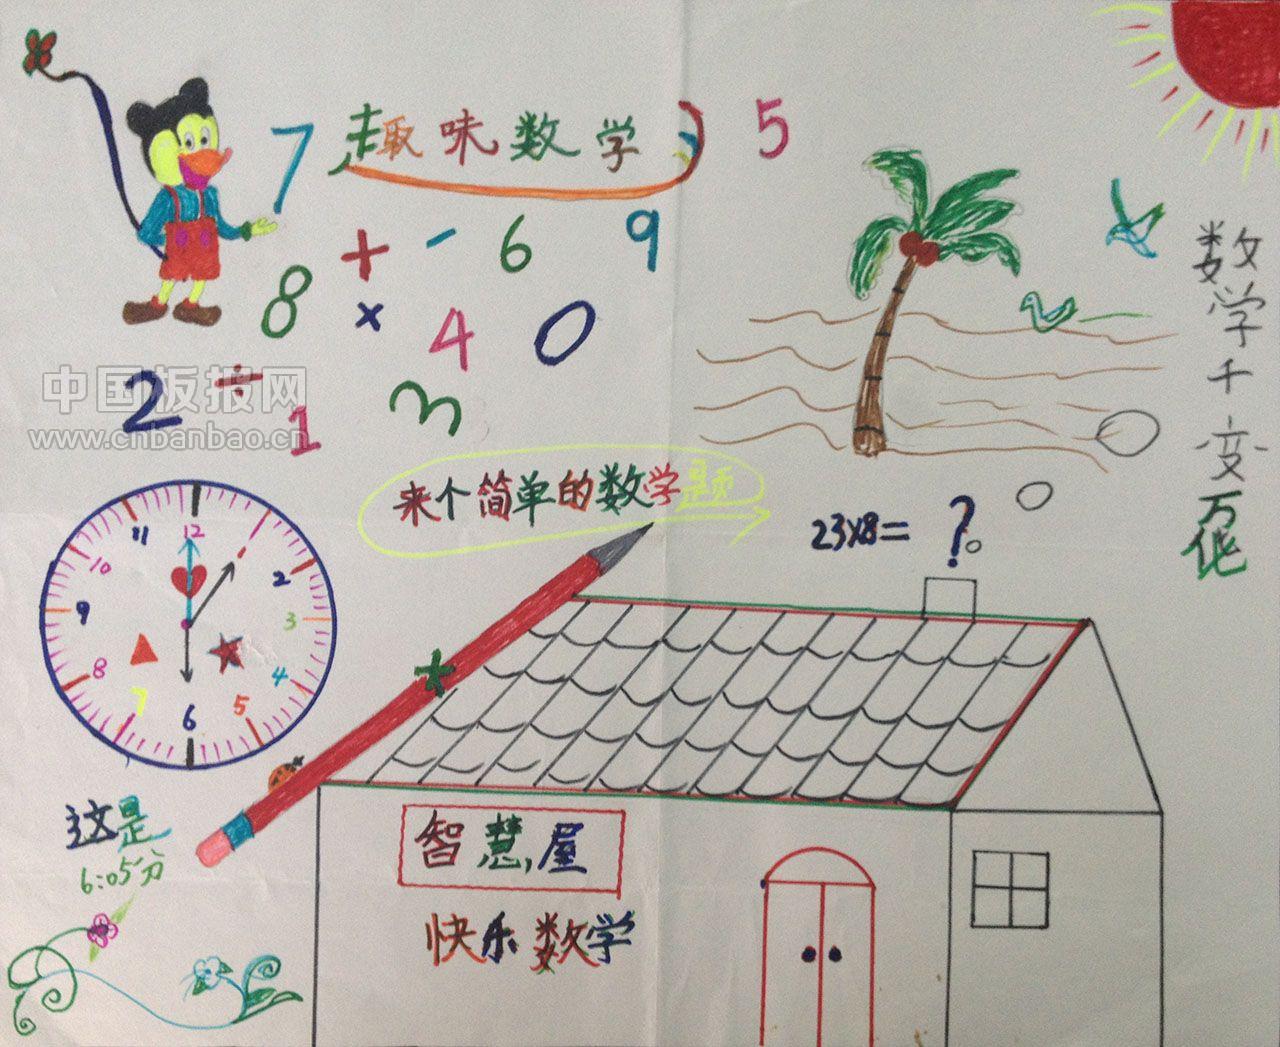 趣味数学
7
5
+ - 6 9
8 × 4 0
2 ÷ 1 3
中国板报网
www.cnbanbao.cn
数学千变万化
来个简单的数学题
23×8= ?
11 12
10 2
9 3
8 4
7 6 5
这是
6:05分
智慧屋
快乐数学